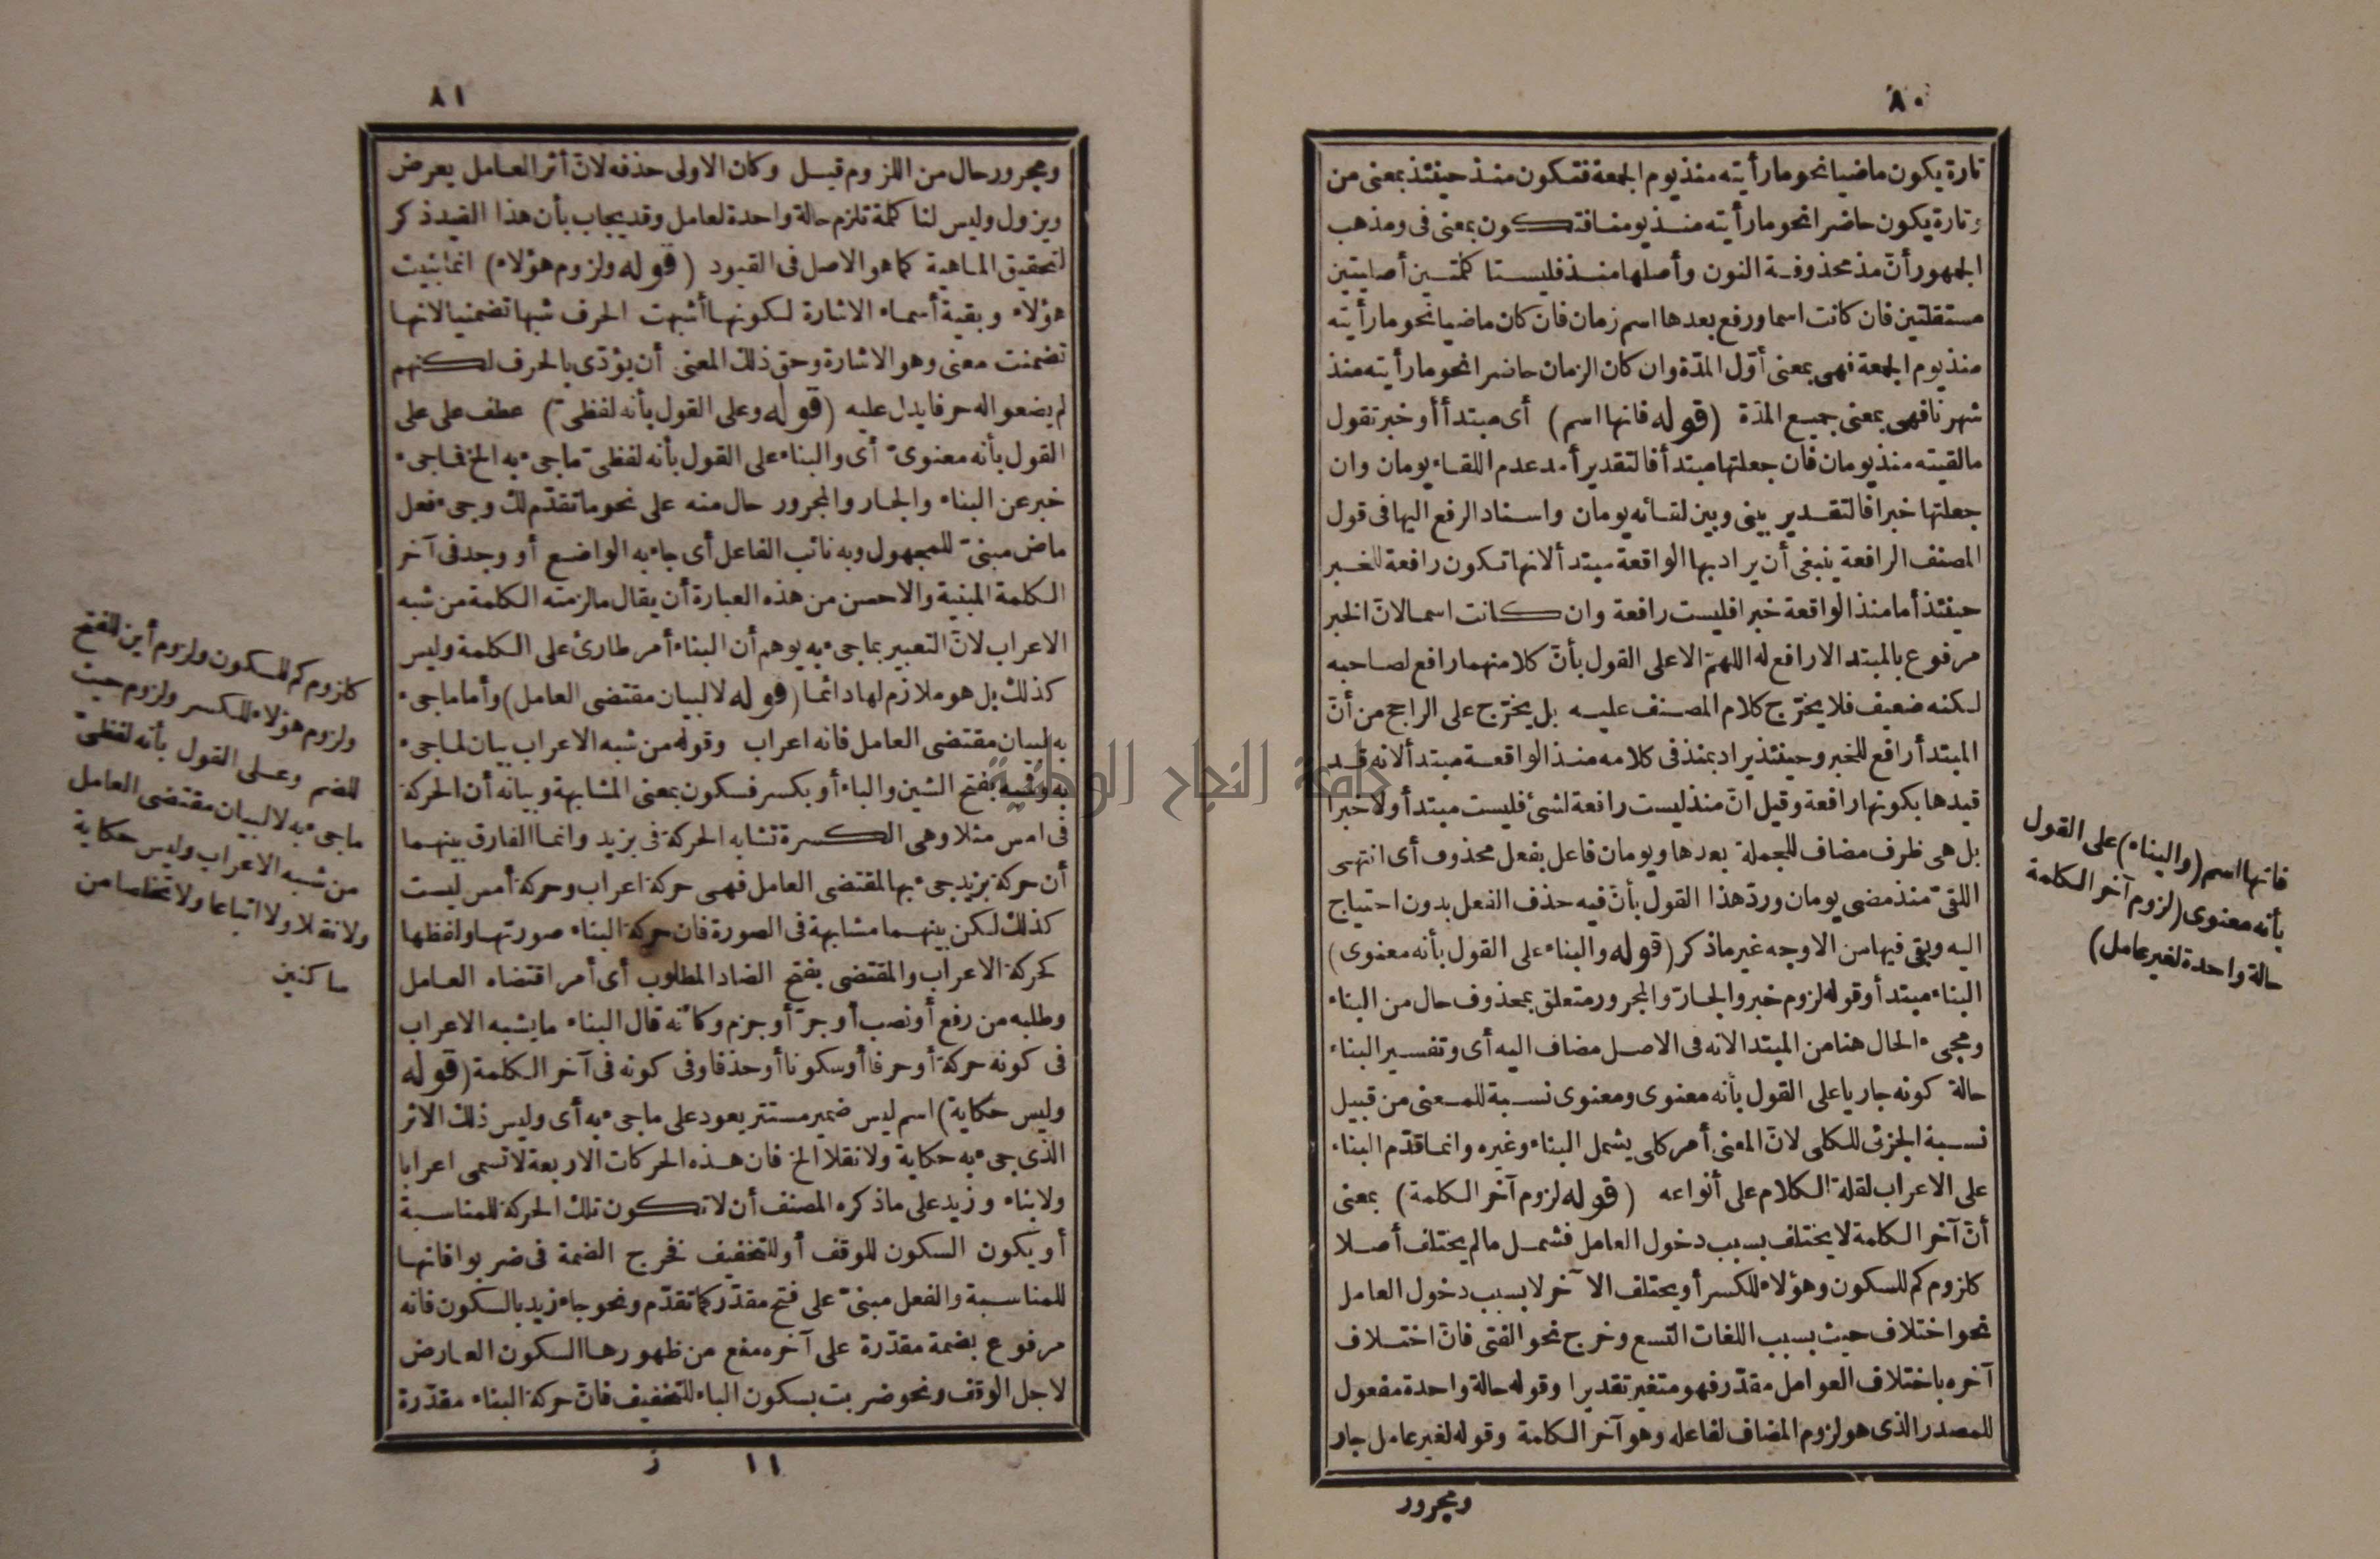 ٨٠
تارة يكون ماضيا نحو ما رأيته منذ يوم الجمعة فتكون منذ حينئذ بمعنى من
وتارة يكون حاضرا نحو ما رأيته منذ يومنا فتكون بمعنى فى ومذهب
الجمهور أنّ مذ محذوفة النون وأصلها منذ فليستا كلمتين أصليتين
مستقلتين فان كانت اسما ورفع بعدها اسم زمان فان كان ماضيا نحو ما رأيته
منذ يوم الجمعة فهى بمعنى أوّل المدّة وان كان الزمان حاضرا نحو ما رأيته منذ
شهرنا فهى بمعنى جميع المدّة (قوله فانها اسم) أى مبتدأ أو خبر تقول
ما لقيته منذ يومان فان جعلتها مبتدأ فالتقدير أمد عدم اللقاء يومان وان
جعلتها خبرا فالتقدير بينى وبين لقائه يومان واسناد الرفع اليها فى قول
المصنف الرافعة ينبغى أن يراد بها الواقعة مبتدأ لانها تكون رافعة للخبر
حينئذ أما منذ الواقعة خبرا فليست رافعة وان كانت اسما لانّ الخبر
مرفوع بالمبتدا لا رافع له اللهمّ الا على القول بأنّ كلا منهما رافع لصاحبه
لكنه ضعيف فلا يخرّج كلام المصنف عليه بل يخرّج على الراجح من أنّ
المبتدأ رافع للخبر وحينئذ يراد بمنذ فى كلامه منذ الواقعة مبتدأ لانه قد
قيدها بكونها رافعة وقيل انّ منذ ليست رافعة لشئ فليست مبتدأ ولا خبرا
بل هى ظرف مضاف للجملة بعدها ويومان فاعل بفعل محذوف أى انتهى
اللقىّ منذ مضى يومان وردّ هذا القول بأنّ فيه حذف الفعل بدون احتياج
اليه وبقى فيها من الاوجه غير ما ذكر (قوله والبناء على القول بأنه معنوى)
البناء مبتدأ وقوله لزوم خبر والجارّ والمجرور متعلق بمحذوف حال من البناء
ومجىء الحال هنا من المبتدا لانه فى الاصل مضاف اليه أى وتفسير البناء
حالة كونه جاريا على القول بأنه معنوى ومعنوى نسبة للمعنى من قبيل
نسبة الجزئى للكلى لانّ المعنى أمر كلى يشمل البناء وغيره وانما قدّم البناء
على الاعراب لقلة الكلام على أنواعه (قوله لزوم آخر الكلمة) بمعنى
أنّ آخر الكلمة لا يختلف بسبب دخول العامل فشمل ما لم يختلف أصلا
كلزوم كم للسكون وهؤلاء للكسر أو يختلف الآخر لا بسبب دخول العامل
نحو اختلاف حيث بسبب اللغات التسع وخرج نحو الفتى فانّ اختلاف
آخره باختلاف العوامل مقدّر فهو متغير تقديرا وقوله حالة واحدة مفعول
للمصدر الذى هو لزوم المضاف لفاعله وهو آخر الكلمة وقوله لغير عامل جار
ومجرور
فانها اسم (والبناء) على القول
بأنه معنوى (لزوم آخر الكلمة
حالة واحدة لغير عامل)
٨١
ومجرور حال من اللزوم قبل وكان الاولى حذفه لانّ أثر العامل يعرض
ويزول وليس لنا كلمة تلزم حالة واحدة لعامل وقد يجاب بأن هذا القيد ذكر
لتحقيق الماهية كما هو الاصل فى القيود (قوله ولزوم هؤلاء) انما بنيت
هؤلاء وبقية أسماء الاشارة لكونها أشبهت الحرف شبها تضمنيا لانها
تضمنت معنى وهو الاشارة وحق ذلك المعنى أن يؤدّى بالحرف لكنهم
لم يضعوا له حرفا يدل عليه (قوله وعلى القول بأنه لفظىّ) عطف على على
القول بأنه معنوىّ أى والبناء على القول بأنه لفظىّ ما جىء به الخ فما جىء
خبر عن البناء والجار والمجرور حال منه على نحو ما تقدّم لك وجىء فعل
ماض مبنىّ للمجهول وبه نائب الفاعل أى جاء به الواضع أو وجد فى آخر
الكلمة المبنية والاحسن من هذه العبارة أن يقال ما لزمته الكلمة من شبه
الاعراب لانّ التعبير بما جىء به يوهم أن البناء أمر طارئ على الكلمة وليس
كذلك بل هو ملازم لها دائما (قوله لا لبيان مقتضى العامل) وأما ما جىء
به لبيان مقتضى العامل فانه اعراب وقوله من شبه الاعراب بيان لما جىء
به وشبه بفتح الشين والباء أو بكسر فسكون بمعنى المشابهة وبيانه أن الحركة
فى امس مثلا وهى الكسرة تشابه الحركة فى بزيد وانما الفارق بينهما
أن حركة بزيد جىء بها لمقتضى العامل فهى حركة اعراب وحركة أمس ليست
كذلك لكن بينهما مشابهة فى الصورة فان حركة البناء صورتها ولفظها
كحركة الاعراب والمقتضى بفتح الضاد المطلوب أى أمر اقتضاه العامل
وطلبه من رفع أو نصب أو جرّ أو جزم وكأنه قال البناء ما يشبه الاعراب
فى كونه حركة أو حرفا أو سكونا أو حذفا وفى كونه فى آخر الكلمة (قوله
وليس حكاية) اسم ليس ضمير مستتر يعود على ما جىء به أى وليس ذلك الاثر
الذى جىء به حكاية ولا نقلا الخ فان هذه الحركات الاربعة لا تسمى اعرابا
ولا بناء وزيد على ما ذكره المصنف أن لا تكون تلك الحركة للمناسبة
أو يكون السكون للوقف أو للتخفيف فخرج الضمة فى ضربوا فانها
للمناسبة والفعل مبنىّ على فتح مقدّر كما تقدّم ونحو جاء زيد بالسكون فانه
مرفوع بضمة مقدّرة على آخره منع من ظهورها السكون العارض
لاجل الوقف ونحو ضربت بسكون الباء للتخفيف فانّ حركة البناء مقدّرة
١١ ز
كلزوم كم للسكون ولزوم أين للفتح
ولزوم هؤلاء للكسر ولزوم حيث
للضم وعلى القول بأنه لفظىّ
ما جىء به لا لبيان مقتضى العامل
من شبه الاعراب وليس حكاية
ولا نقلا ولا اتباعا ولا تخلصا من
ساكنين
جامعة النجاح الوطنية